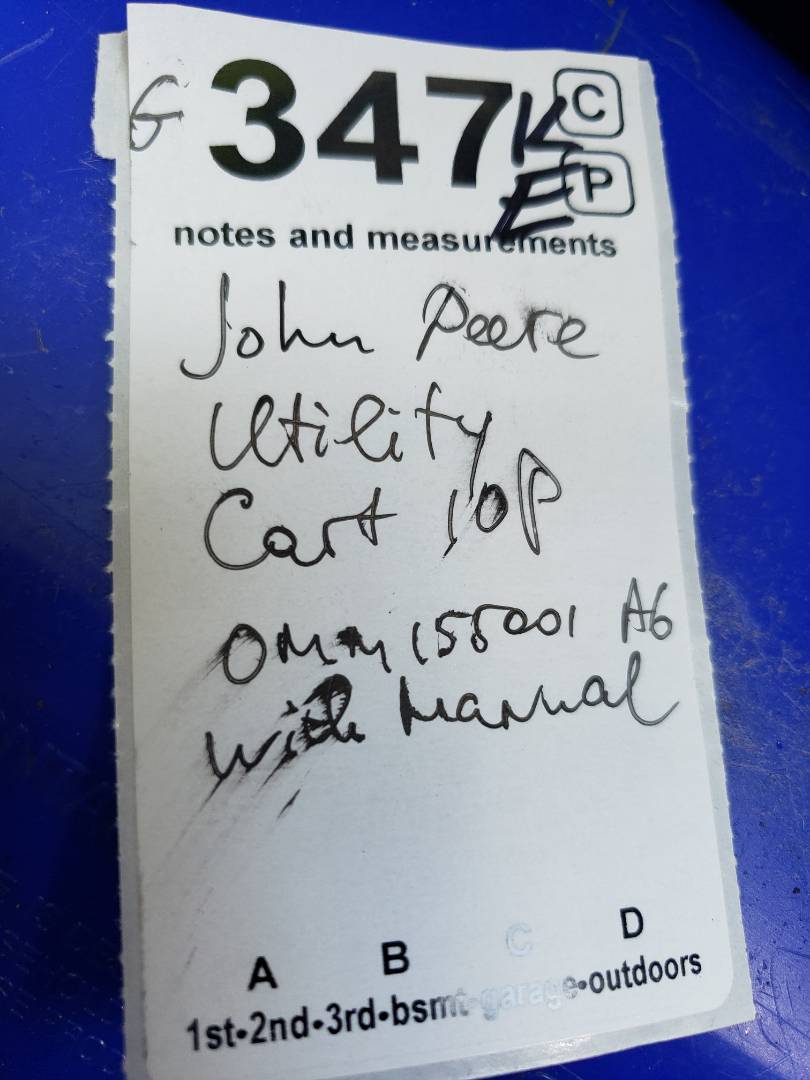 G 347 K C
E P
notes and measurements
John Deere
Utility
Cart 10P
OMM155001 A6
with manual
A B C D
1st•2nd•3rd•bsmt•garage•outdoors